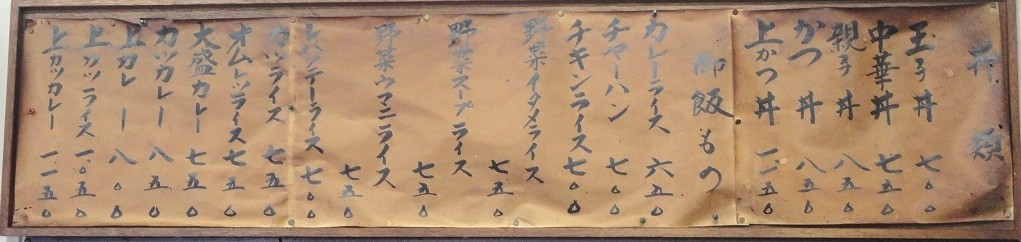 丼類
玉子丼 七〇〇
中華丼 七五〇
親子丼 八五〇
かつ丼 八五〇
上かつ丼 一、一五〇
御飯もの
カレーライス 六五〇
チャーハン 七〇〇
チキンライス 七〇〇
野菜イタメライス 七五〇
野菜スープライス 七五〇
野菜ウマニライス 七五〇
レバニラーライス 七〇〇
カツライス 七五〇
オムレツライス 七五〇
大盛カレー 七五〇
カツカレー 八五〇
上カレー 八〇〇
上カツライス 一、〇五〇
上カツカレー 一、一五〇